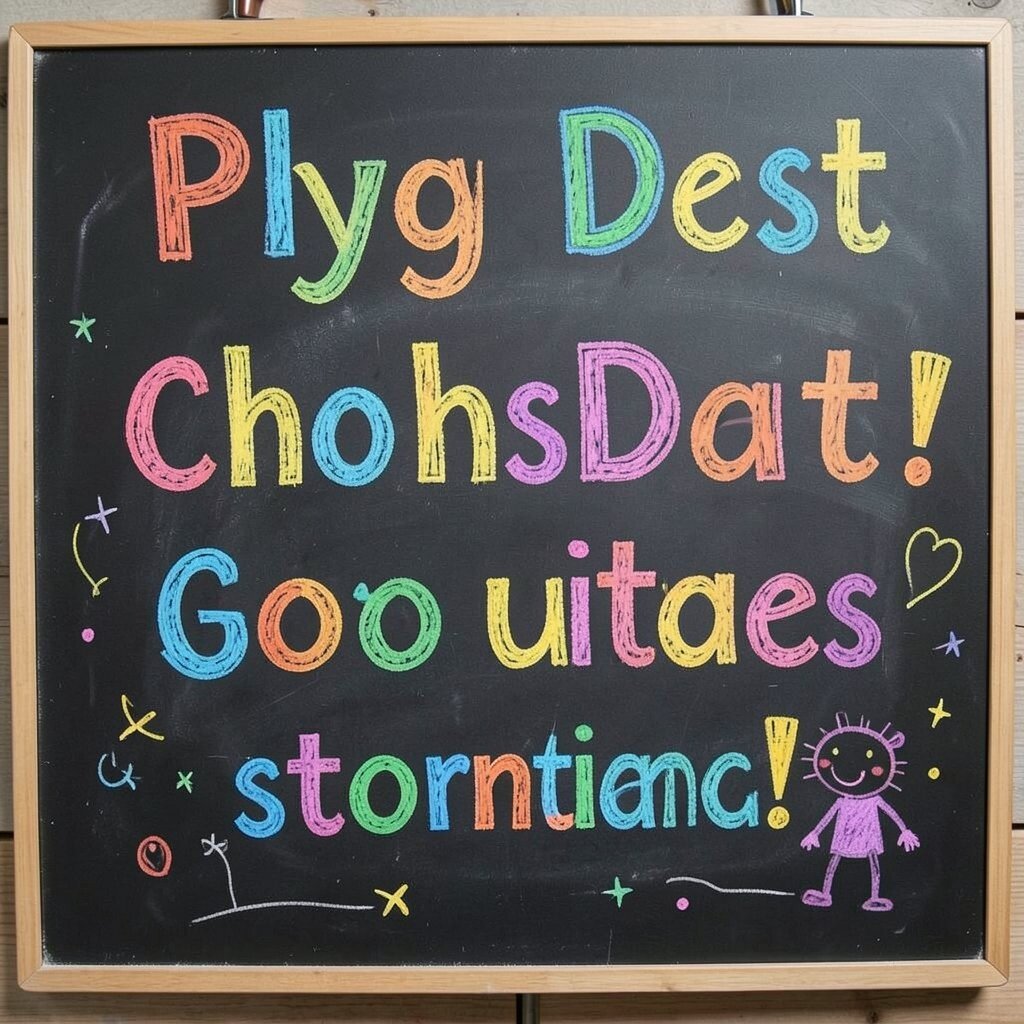 Plyg Dest
ChohsDat!
Goo uitaes
storntiamc!